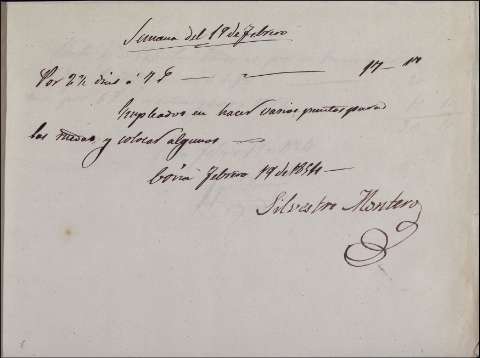 Semana del 19 de Febrero
Por 2½ dias á 7 P — — 17 - 17
Empleados en hacer varios puntos para
las ruedas y colocar algunos —
Coria Febrero 19 de 1854 —
Silvestre Montero